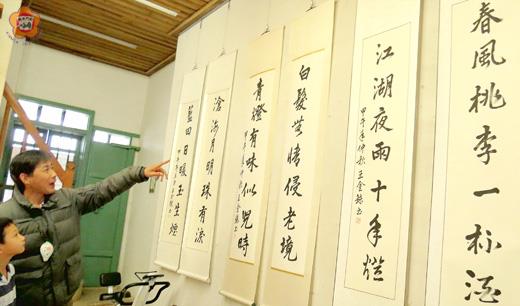 春風桃李一杯酒
江湖夜雨十年燈
甲午年仲秋王金書
白髮無情侵老境
青燈有味似兒時
滄海月明珠有淚
藍田日暖玉生煙